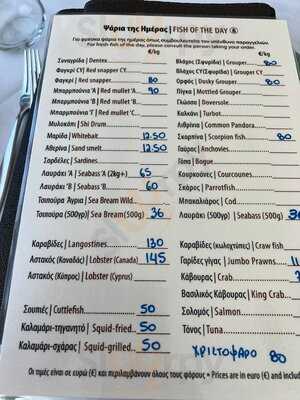 Ψάρια της Ημέρας | FISH OF THE DAY
Για φρέσκα ψάρια της ημέρας όπως συμβουλευτείτε τον υπεύθυνο παραγγελιών.
For fresh fish of the day, please consult the person taking your order.
€/kg €/kg
Συναγρίδα | Dentex
Φαγκρί CY | Red snapper CY
Φαγκρί | Red snapper 80
Μπαρμπούνια 'Α | Red mullet 'A 90
Μπαρμπούνια 'Β | Red mullet 'B
Μπαρμπούνια 'Γ | Red mullet 'C
Μυλοκόπι | Shi Drum
Μαρίδα | Whitebait 12.50
Αθερίνα | Sand smelt 12.50
Σαρδέλες | Sardines
Λαυράκι 'Α | Seabass 'A (2kg+) 65
Λαυράκι 'Β | Seabass 'B 60
Τσιπούρα Άγρια | Sea Bream Wild
Τσιπούρα (500γρ) | Sea Bream (500g) 36
Βλάχος (Σφυρίδα) | Grouper 80
Βλάχος CY (Σφυρίδα) | Grouper CY
Ορφός | Dusky Grouper 80
Πίγκα | Mottled Grouper
Γλώσσα | Doversole
Καλκάνι | Turbot
Λιθρίνια | Common Pandora
Σκορπίνα | Scorpion fish 80
Γαύρος | Anchovies
Γόπα | Bogue
Κουρκούνες | Courcounes
Σκάρος | Parrotfish
Μπακαλιάρος | Cod
Λαυράκι (500γρ) | Seabass (500g) 36
Καραβίδες | Langostines 130
Αστακός (Καναδάς) | Lobster (Canada) 145
Αστακός (Κύπρος) | Lobster (Cyprus)
Καραβίδες (κωλοχτύπες) | Craw fish
Γαρίδες γίγας | Jumbo Prawns 11
Κάβουρας | Crab
Βασιλικός Κάβουρας | King Crab
Σουπιές | Cuttlefish 50
Καλαμάρι-τηγανητό | Squid-fried 50
Καλαμάρι-σχάρας | Squid-grilled 50
Σολομός | Salmon
Τόνος | Tuna
ΧΡΙΣΤΟΨΑΡΟ 80
Οι τιμές είναι σε ευρώ (€) και περιλαμβάνουν όλους τους φόρους • Prices are in euro (€) and